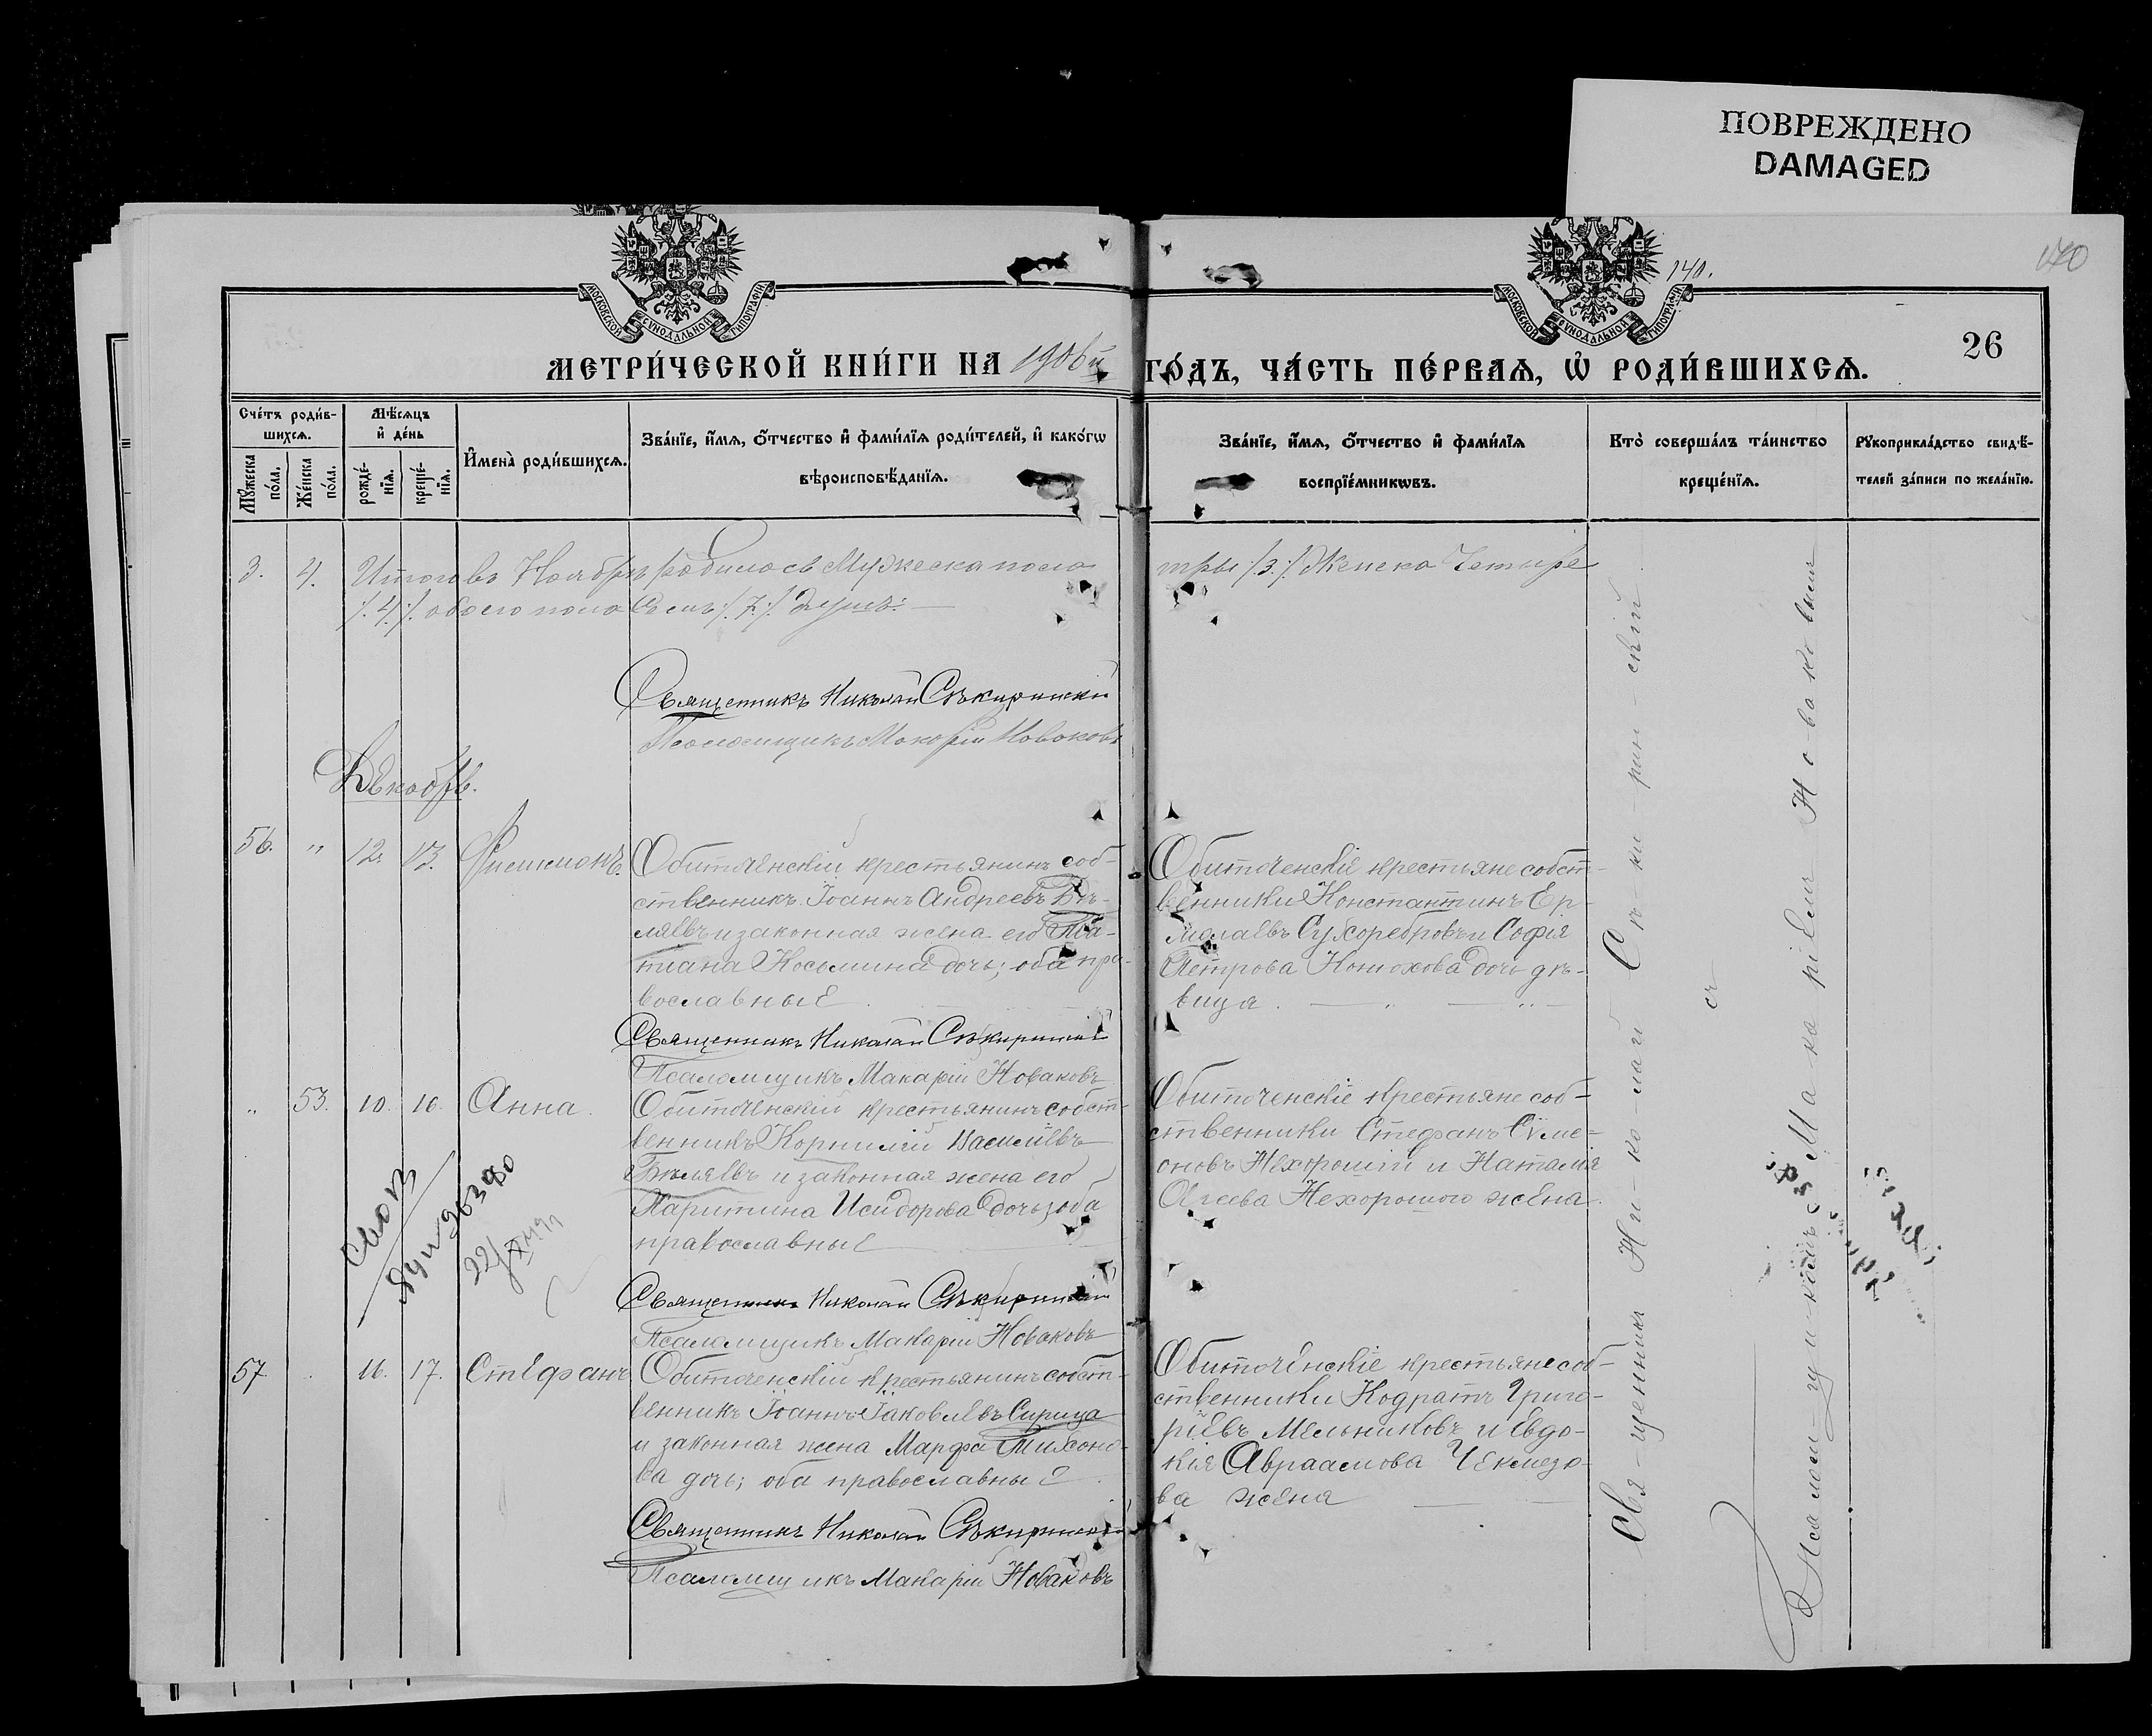 ПОВРЕЖДЕНО
DAMAGED
140.
МОСКОВСКОЙ СѴНОДАЛЬНОЙ ТИПОГРАФІИ
МОСКОВСКОЙ СѴНОДАЛЬНОЙ ТИПОГРАФІИ
26
МЕТРИ́ЧЕСКОЙ КНИ́ГИ НА 1906й ГО́ДЪ, ЧА́СТЬ ПЕ́РВАѦ, Ѡ҆ РОДИ́ВШИХСѦ.
Сче́тъ роди́в-
шихсѧ.
Мꙋ́жеска по́ла.
Же́нска по́ла.
Мѣ́сѧцъ
и҆ де́нь
рожде́-
нїѧ.
креще́-
нїѧ.
И҆мена̀ роди́вшихсѧ.
Зва́нїе, и҆́мѧ, ѻ҆́тчество и҆ фами́лїѧ роди́телей, и҆ како́гѡ
вѣроисповѣ́данїѧ.
Зва́нїе, и҆́мѧ, ѻ҆́тчество и҆ фами́лїѧ
воспрїе́мникѡвъ.
Кто̀ соверша́лъ та́инство
креще́нїѧ.
Рꙋкоприкла́дство свидѣ́-
телей за́писи по жела́нїю.
3. 4. Итого въ Ноябрѣ родилось Мужеска пола три /:3:/ Женска Четыре
/:4:/ обоего пола Семь /:7:/ душъ.
Священникъ Николай Сѣкиринскій
Псаломщикъ Макарій Новаковъ
Декабрь.
56. " 12. 13. Филимонъ.
Обиточенскій крестьянинъ соб-
ственникъ Іоаннъ Андреевъ Бѣ-
ляевъ и законная жена его Та-
тіана Косьмина дочь; оба пра-
вославные
Обиточенскіе крестьяне собст-
венники Константинъ Ер-
молаевъ Сухоребровъ и Софія
Петрова Конюхова дочь дѣ-
вица.
Священникъ Николай Сѣкиринскій
Псаломщикъ Макарій Новаковъ
" 53. 10. 16. Анна.
Обиточенскій крестьянинъ собст-
венникъ Корнилій Василіевъ
Бѣляевъ и законная жена его
Харитина Исидорова дочь; оба
православные
Обиточенскіе крестьяне соб-
ственники Стефанъ Сѵме-
оновъ Нехорошій и Наталія
Агеева Нехорошого жена.
Священникъ Николай Сѣкиринскій
Псаломщикъ Макарій Новаковъ
57 16. 17. Стефанъ
Обиточенскій крестьянинъ собст-
венникъ Іоаннъ Іаковлевъ Сирица
и законная жена Марфа Тихоно-
ва дочь; оба православные.
Обиточенскіе крестьяне соб-
ственники Кодратъ Григо-
ріевъ Мельниковъ и Евдо-
кія Авраамова Чекмезо-
ва жена
Священникъ Николай Сѣкиринскій
Псаломщикъ Макарій Новаковъ
Свя-щенникъ Ни-ко-лай Сѣ-ки-рин-скій
съ
Псалом-щи-комъ Макаріемъ Новаковымъ